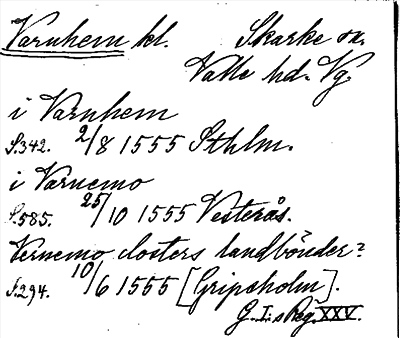 Varnhem kl. Skarke sn.
Valle hd. Vg.
i Varnhem
S.342. 2/8 1555 Sthlm.
i Varnemo
S.585. 25/10 1555 Vesterås.
Vernemo closters landbönder?
S.294. 10/6 1555 [Gripsholm].
G. I:s Reg. XXV.